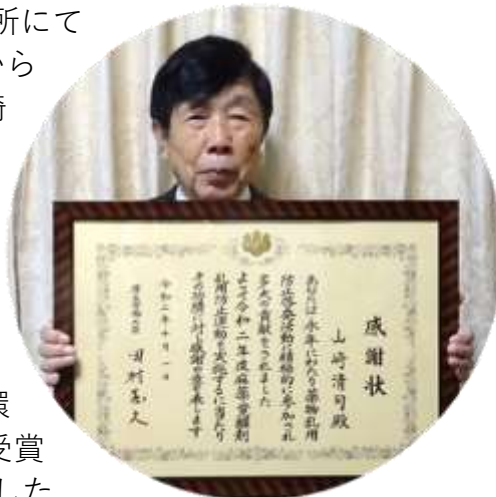 所にて
から
崎
感謝状
山崎清司殿
あなたは永年にわたり薬物乱用
防止啓発活動に積極的に参加され
多大の貢献をされました
よって令和二年度麻薬・覚醒剤
乱用防止運動を実施するに当たり
その功績に対し感謝の意を表します
令和二年十月一日
厚生労働大臣 田村憲久
環
受賞
した